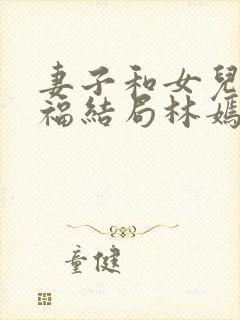 妻子和女兒
福結局林嫣
童健